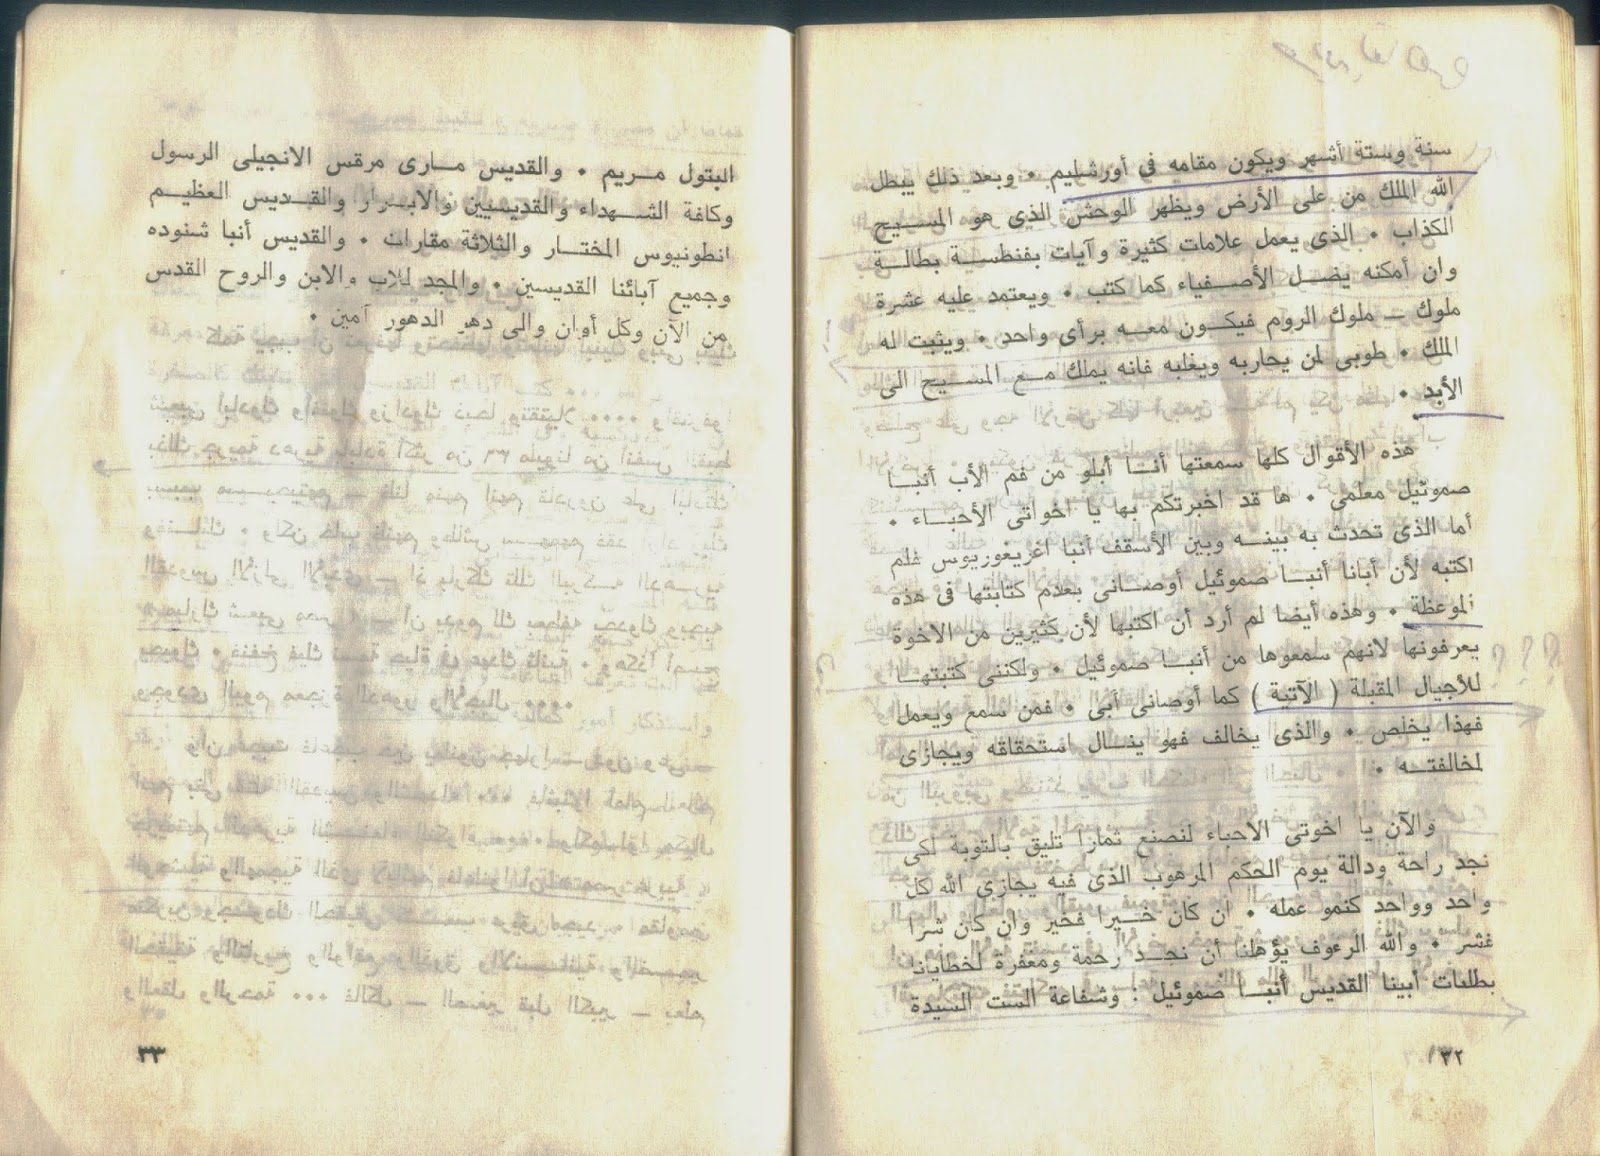 سنة وستة أشهر ويكون مقامه في أورشليم • وبعد ذلك يبطل
الله الملك من على الأرض ويظهر الوحش الذى هو المسيح
الكذاب • الذى يعمل علامات كثيرة وآيات بفنطسية بطالة
وان أمكنه يضل الأصفياء كما كتب • ويعتمد عليه عشرة
ملوك – ملوك الروم فيكون معه برأى واحد • ويثبت له
الملك • طوبى لمن يحاربه ويغلبه فانه يملك مع المسيح الى
الأبد •
هذه الأقوال كلها سمعتها أنا أبلو من فم الأب أنبا
صموئيل معلمى • ها قد اخبرتكم بها يا اخواتى الأحباء •
أما الذى تحدث به بينه وبين الأسقف أنبا اغريغوريوس فلم
اكتبه لأن أبانا أنبا صموئيل أوصانى بعدم كتابتها فى هذه
الموعظة • وهذه أيضا لم أرد أن اكتبها لأن كثيرين من الاخوة
يعرفونها لانهم سمعوها من أنبا صموئيل • ولكننى كتبتها
للأجيال المقبلة ( الآتية ) كما أوصانى أبى • فمن سمع ويعمل
فهذا يخلص • والذى يخالف فهو ينال استحقاقه ويجازى
لمخالفته •
والآن يا اخوتى الاحباء لنصنع ثمارا تليق بالتوبة لكى
نجد راحة ودالة يوم الحكم المرهوب الذى فيه يجازى الله كل
واحد وواحد كنمو عمله • ان كان خيرا فخير وان كان شرا
فشر • والله الرءوف يؤهلنا أن نجد رحمة ومغفرة لخطايانا
بطلبات أبينا القديس أنبا صموئيل : وشفاعة الست السيدة
٣٢
البتول مريم • والقديس مارى مرقس الانجيلى الرسول
وكافة الشهداء والقديسيين والابرار والقديس العظيم
انطونيوس المختار والثلاثة مقارات • والقديس أنبا شنوده
وجميع آبائنا القديسين • والمجد للاب والابن والروح القدس
من الآن وكل أوان والى دهر الدهور آمين •
٣٣